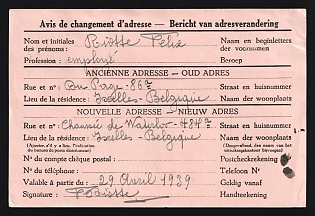 Avis de changement d'adresse — Bericht van adresverandering
Nom et initiales des prénoms : Piötte Félix Naam en beginletters der voornamen
Profession : employé Beroep
ANCIENNE ADRESSE — OUD ADRES
Rue et n° : Du Page - 86 Straat en huisnummer
Lieu de la résidence : Ixelles - Belgique Naam der woonplaats
NOUVELLE ADRESSE — NIEUW ADRES
Rue et n° : Chaussée de Waterloo - 484 Straat en huisnummer
Lieu de la résidence : Ixelles - Belgique Naam der woonplaats
(Ajouter, s'il y a lieu, l'indication du bureau de poste distributeur) (Desgevallend, den naam van het uitreikingskantoor bijvoegen)
N° du compte chèque postal : Postcheckrekening
N° du téléphone : Telefoon N°
Valable à partir du : 29 Avril 1939 Geldig vanaf
Signature : Handteekening